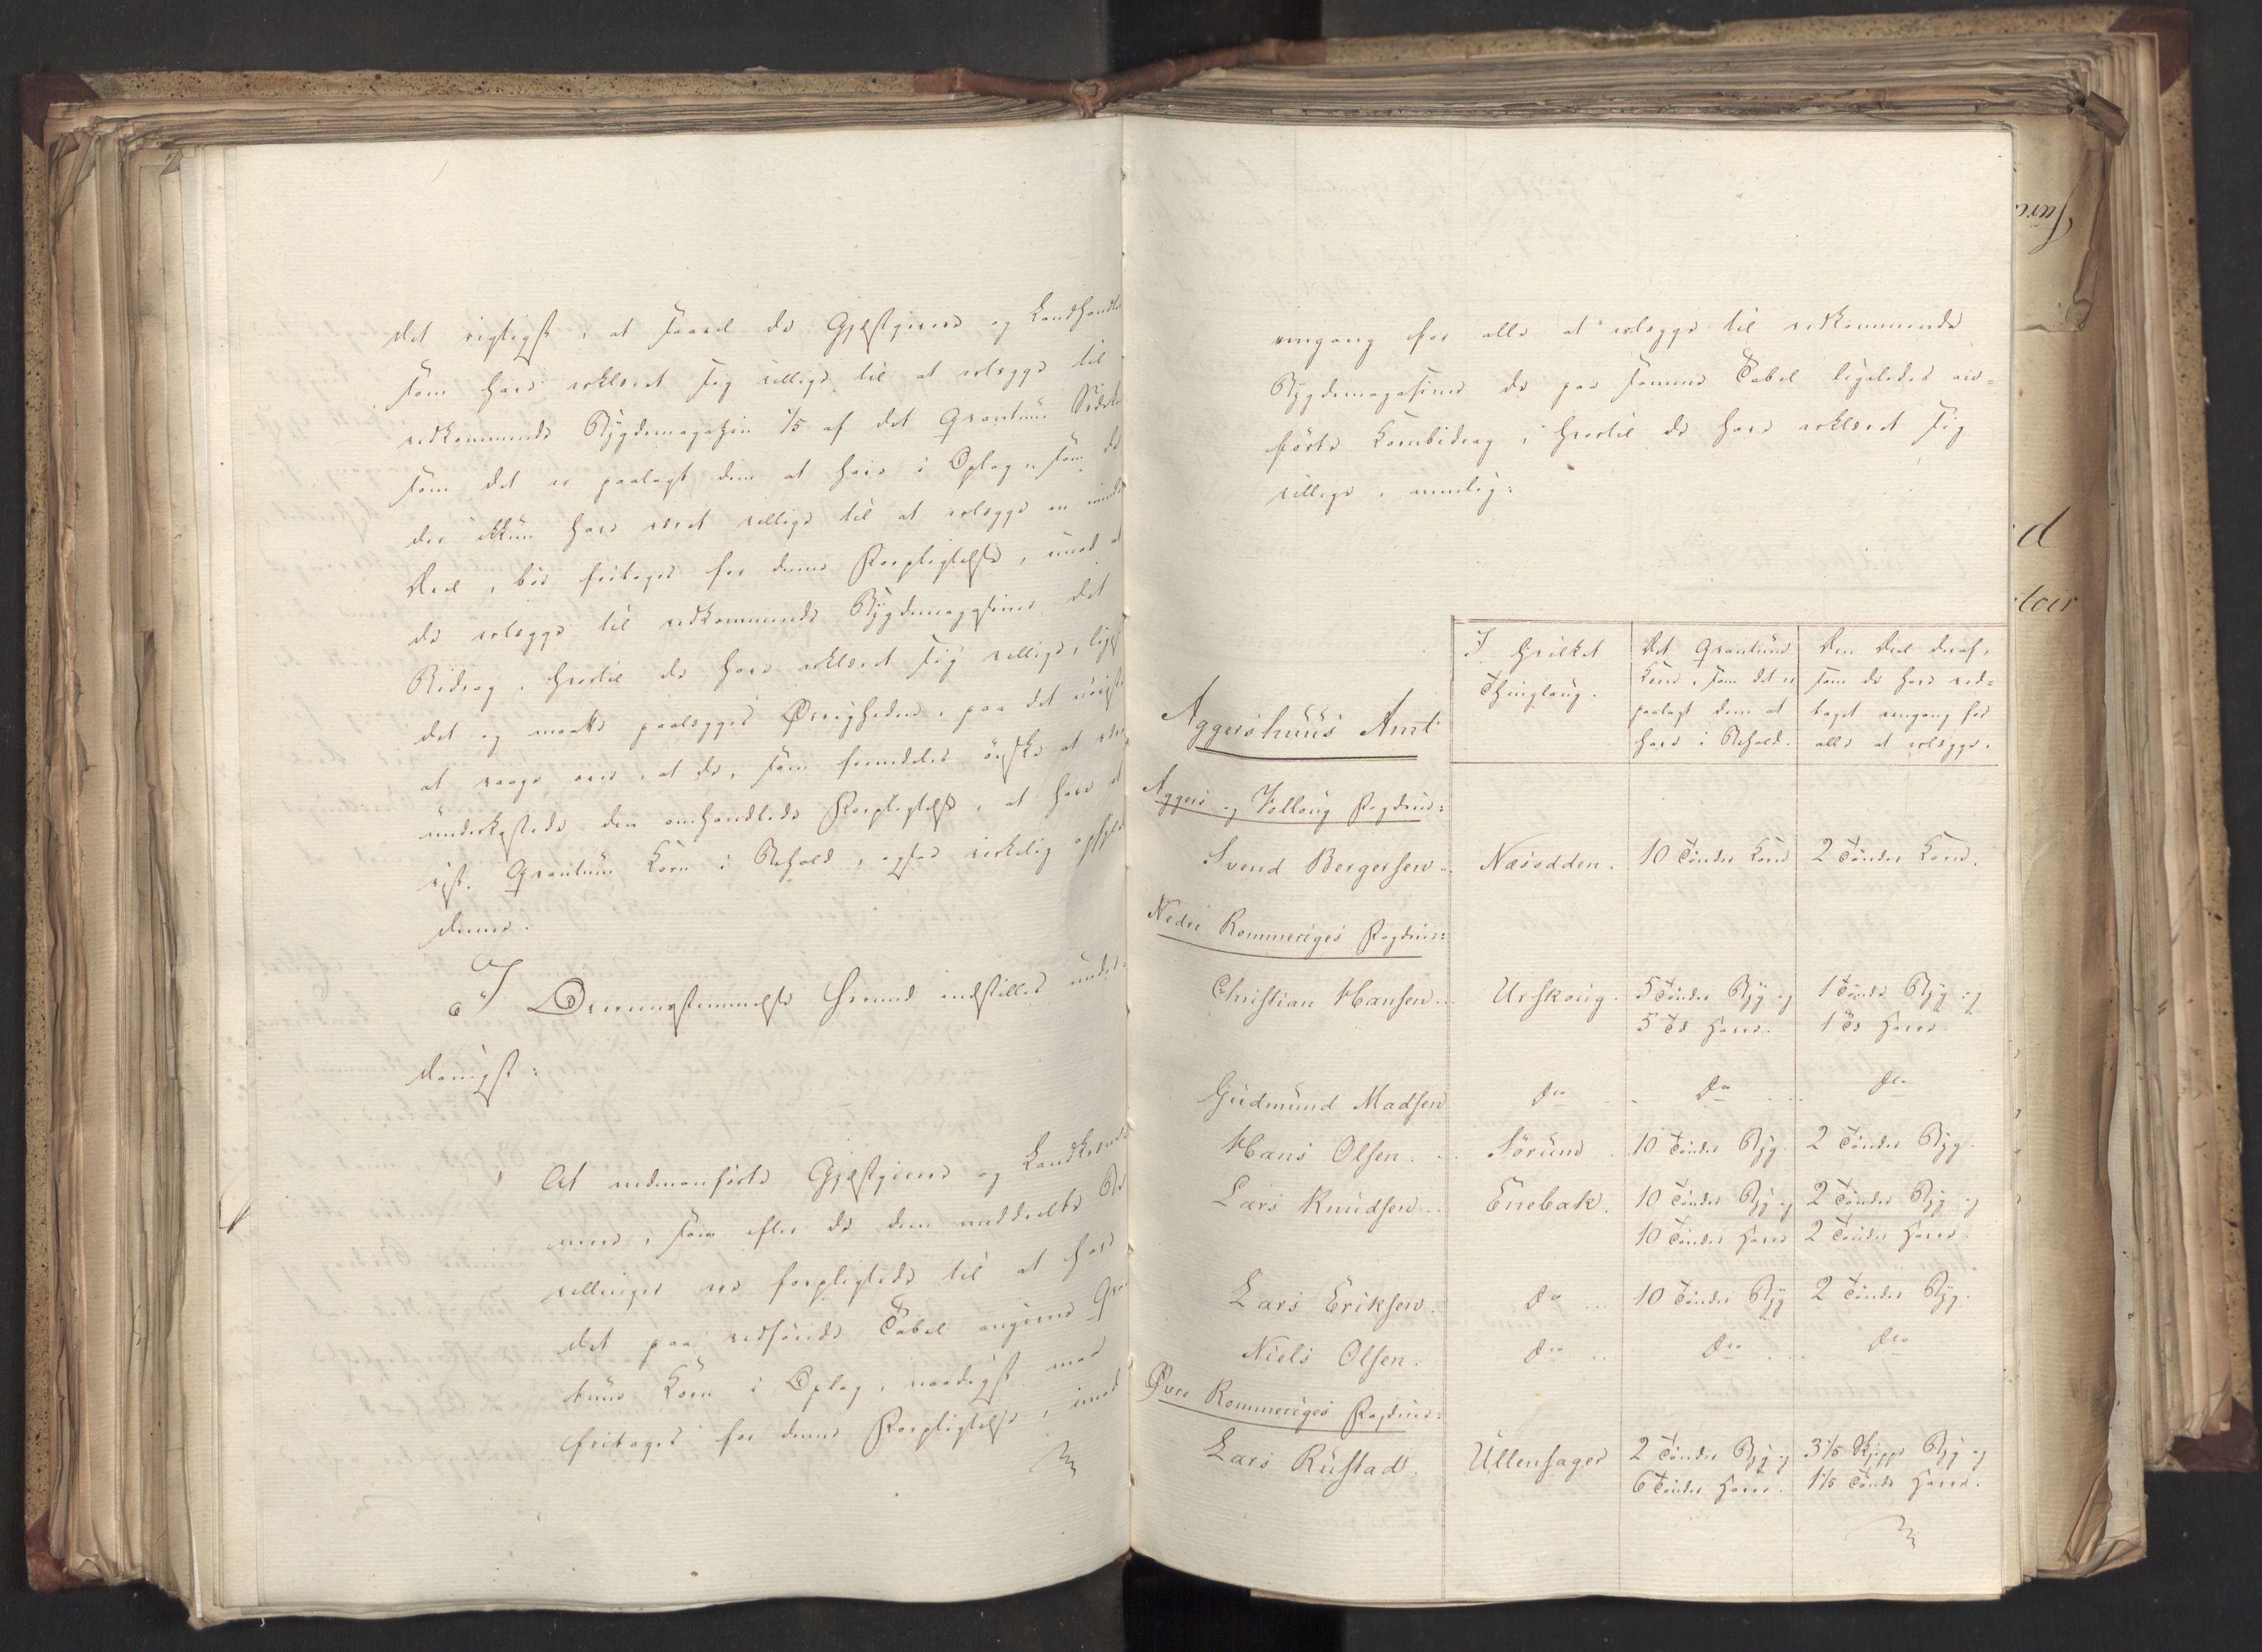 det rigtigst, at saavel de Gjæstgivere og Landhandle
som have erklæret sig villige til at erlægge til
vedkommende Bygdemagazin 1/5 af det Qvantum
som det er paalagt dem at have i Oplag, som de
der ikkun have været villige til at erlægge en mindre
Deel, bör fritages for denne Forpligtelse, imod at
de erlægge til vedkommende Bygdemagasin det
Bidrag, hvortil de have erklæret sig villige, ligesom
det og maatte paalægges Øvrigheden, paa det nöieste
at vaage over, at de, som fremdeles önske at være
underkastede den omhandlede Forpligtelse, at have et
vist Qvantum Korn i Behold, ogsaa virkelig opfylde
denne.
I Overeensstemmelse hermed indstilles under=
danigst:
At nedenanförte Gjæstgivere og Landkræm=
mere, som efter de dem meddeelte Be
villinger ere forpligtede til at have
det paa vedföiede Tabel angivne Qvan
tum Korn i Oplag, naadigst maae
fritages for denne Forpligtelse, imod
eengang for alle at erlægge til vedkommende
Bygdemagasiner de paa samme Tabel ligeledes an=
förte Kornbidrag, hvortil de have erklæret sig
villige, nemlig:
I hvilket Thinglaug. Det Qvantum Korn, som det er paalagt dem at have i Behold. Den Deel deraf, som de have ved= taget eengang for alle at erlægge.
Aggershuus Amt
Aggers og Folloug Fogderie:
Svend Bergersen.. Næsodden. 10 Tönder Korn 2 Tönder Korn.
Nedre Rommeriges Fogderie:
Christian Hansen... Urskoug. 5 Tönder Byg og 1 Tönde Byg og
5 Td Havre. 1 Td Havre.
Gudmund Madsen do .. do ... do
Hans Olsen. .. Sörum . 10 Tönder Byg. 2 Tönder Byg.
Lars Knudsen.. Enebak. 10 Tönder Byg og 2 Tönder Byg og
10 Tönder Havre 2 Tönder Havre.
Lars Eriksen. do ... 10 Tönder Byg 2 Tönder Byg.
Niels Olsen. do .. do .... do
Øvre Rommeriges Fogderie:
Lars Rustad. Ullensager 2 Tönder Byg og 3 1/5 Skjeppe Byg og
6 Tönder Havre. 1 1/5 Tönde Havre.